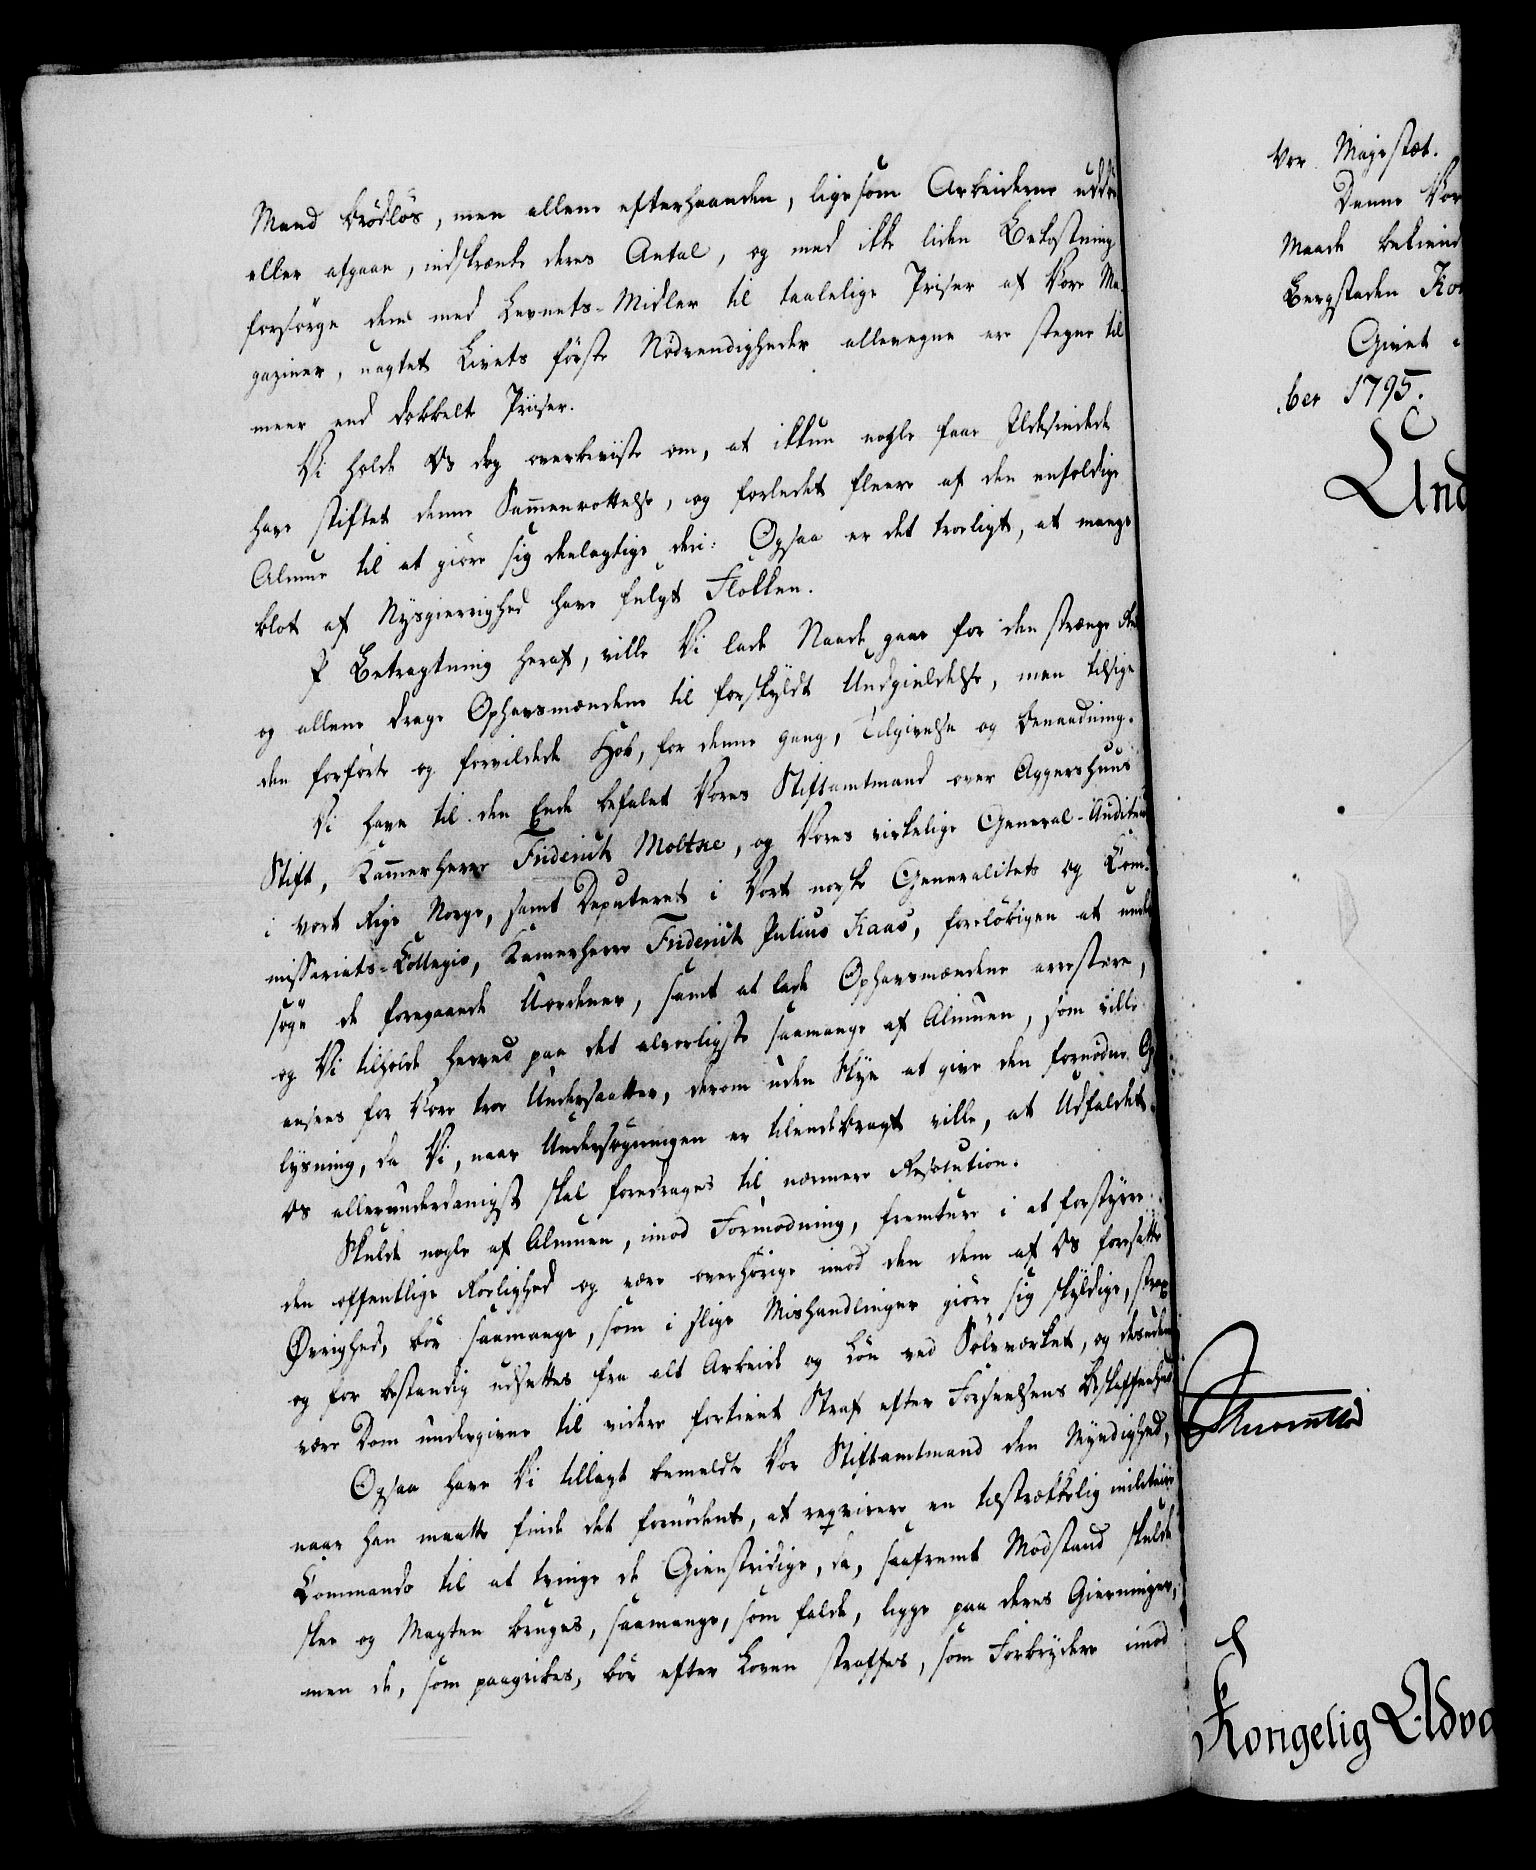 Mand brödlös, men allene efterhaanden, ligesom Arbeiderne uddöe
eller afgaae, indskrænke deres Antal, og med ikke liden Bekostning
forsörge dem med Levnets-Midler til taalelige Priser af Vore Ma-
gaziner, uagtet Livets förste Nödvendigheder allevegne ere stegne til
meer end dobbelt Priiser.
Vi holde Os dog overbeviiste om, at ikkun nogle faae Ildesindede
have stiftet denne Sammenrottelse, og forledet fleere af den eenfoldige
Almue til at giöre sig deelagtige deri: Ogsaa er det troeligt, at mange
blot af Nysgierrighed have fulgt Flokken.
I Betragtning heraf, ville Vi lade Naade gaae for den strænge Ret
og allene drage Ophavsmændene til forskyldt Undgieldelse, men tilsige
den forförte og forvildede Hob, for denne gang, Tilgivelse og Benaadning.
Vi have til den Ende befalet Vores Stiftamtmand over Aggershuus
Stift, Kammerherre Friderich Moltke, og Vores virkelige General-Auditeur
i vort Rige Norge, samt Deputeret i Vort norske Generalitets og Com-
missariats-Collegio, Kammerherre Friderich Julius Kaas, forelöbigen at under-
söge de foregaaede Uordener, samt at lade Ophavsmændene arrestere,
og Vi tilholde herved paa det alvorligste saamange af Almuen, som ville
ansees for Vore troe Undersaatter, derom uden Skye at give den fornödne Op-
lysning, da Vi, naar Undersøgningen er tilendebragt ville, at Udfaldet
Os allerunderdanigst skal foredrages til nærmere Resolution.
Skulde nogle af Almuen, imod Formodning, fremture i at forstyrre
den offentlige Roelighed og være overhörige imod den dem af Os foresatte
Øvrighed, bör saamange, som i slige Mishandlinger giöre sig skyldige, strax
og for bestandig udsættes fra alt Arbeide og Lön ved Sölvværket, og desuden
være Dom undergivne til videre fortient Straf efter Forseelsens Beskaffenhed
Ogsaa have Vi tillagt bemeldte Vor Stiftamtmand den Myndighed,
naar han maatte finde det fornödent, at reqvirere en tilstrækkelig militair
Commando til at tvinge de Gienstridige, da, saafremt Modstand skulde
skee og Magten bruges, saamange, som falde, ligge paa deres Gierninger,
men de, som paagribes, bör efter Loven straffes, som Forbrydere imod
Vor Majestæt.
Denne Vor
Maade bekiend
Bergstaden Kon
Givet
ber 1795.
Und
Kongelig Adva